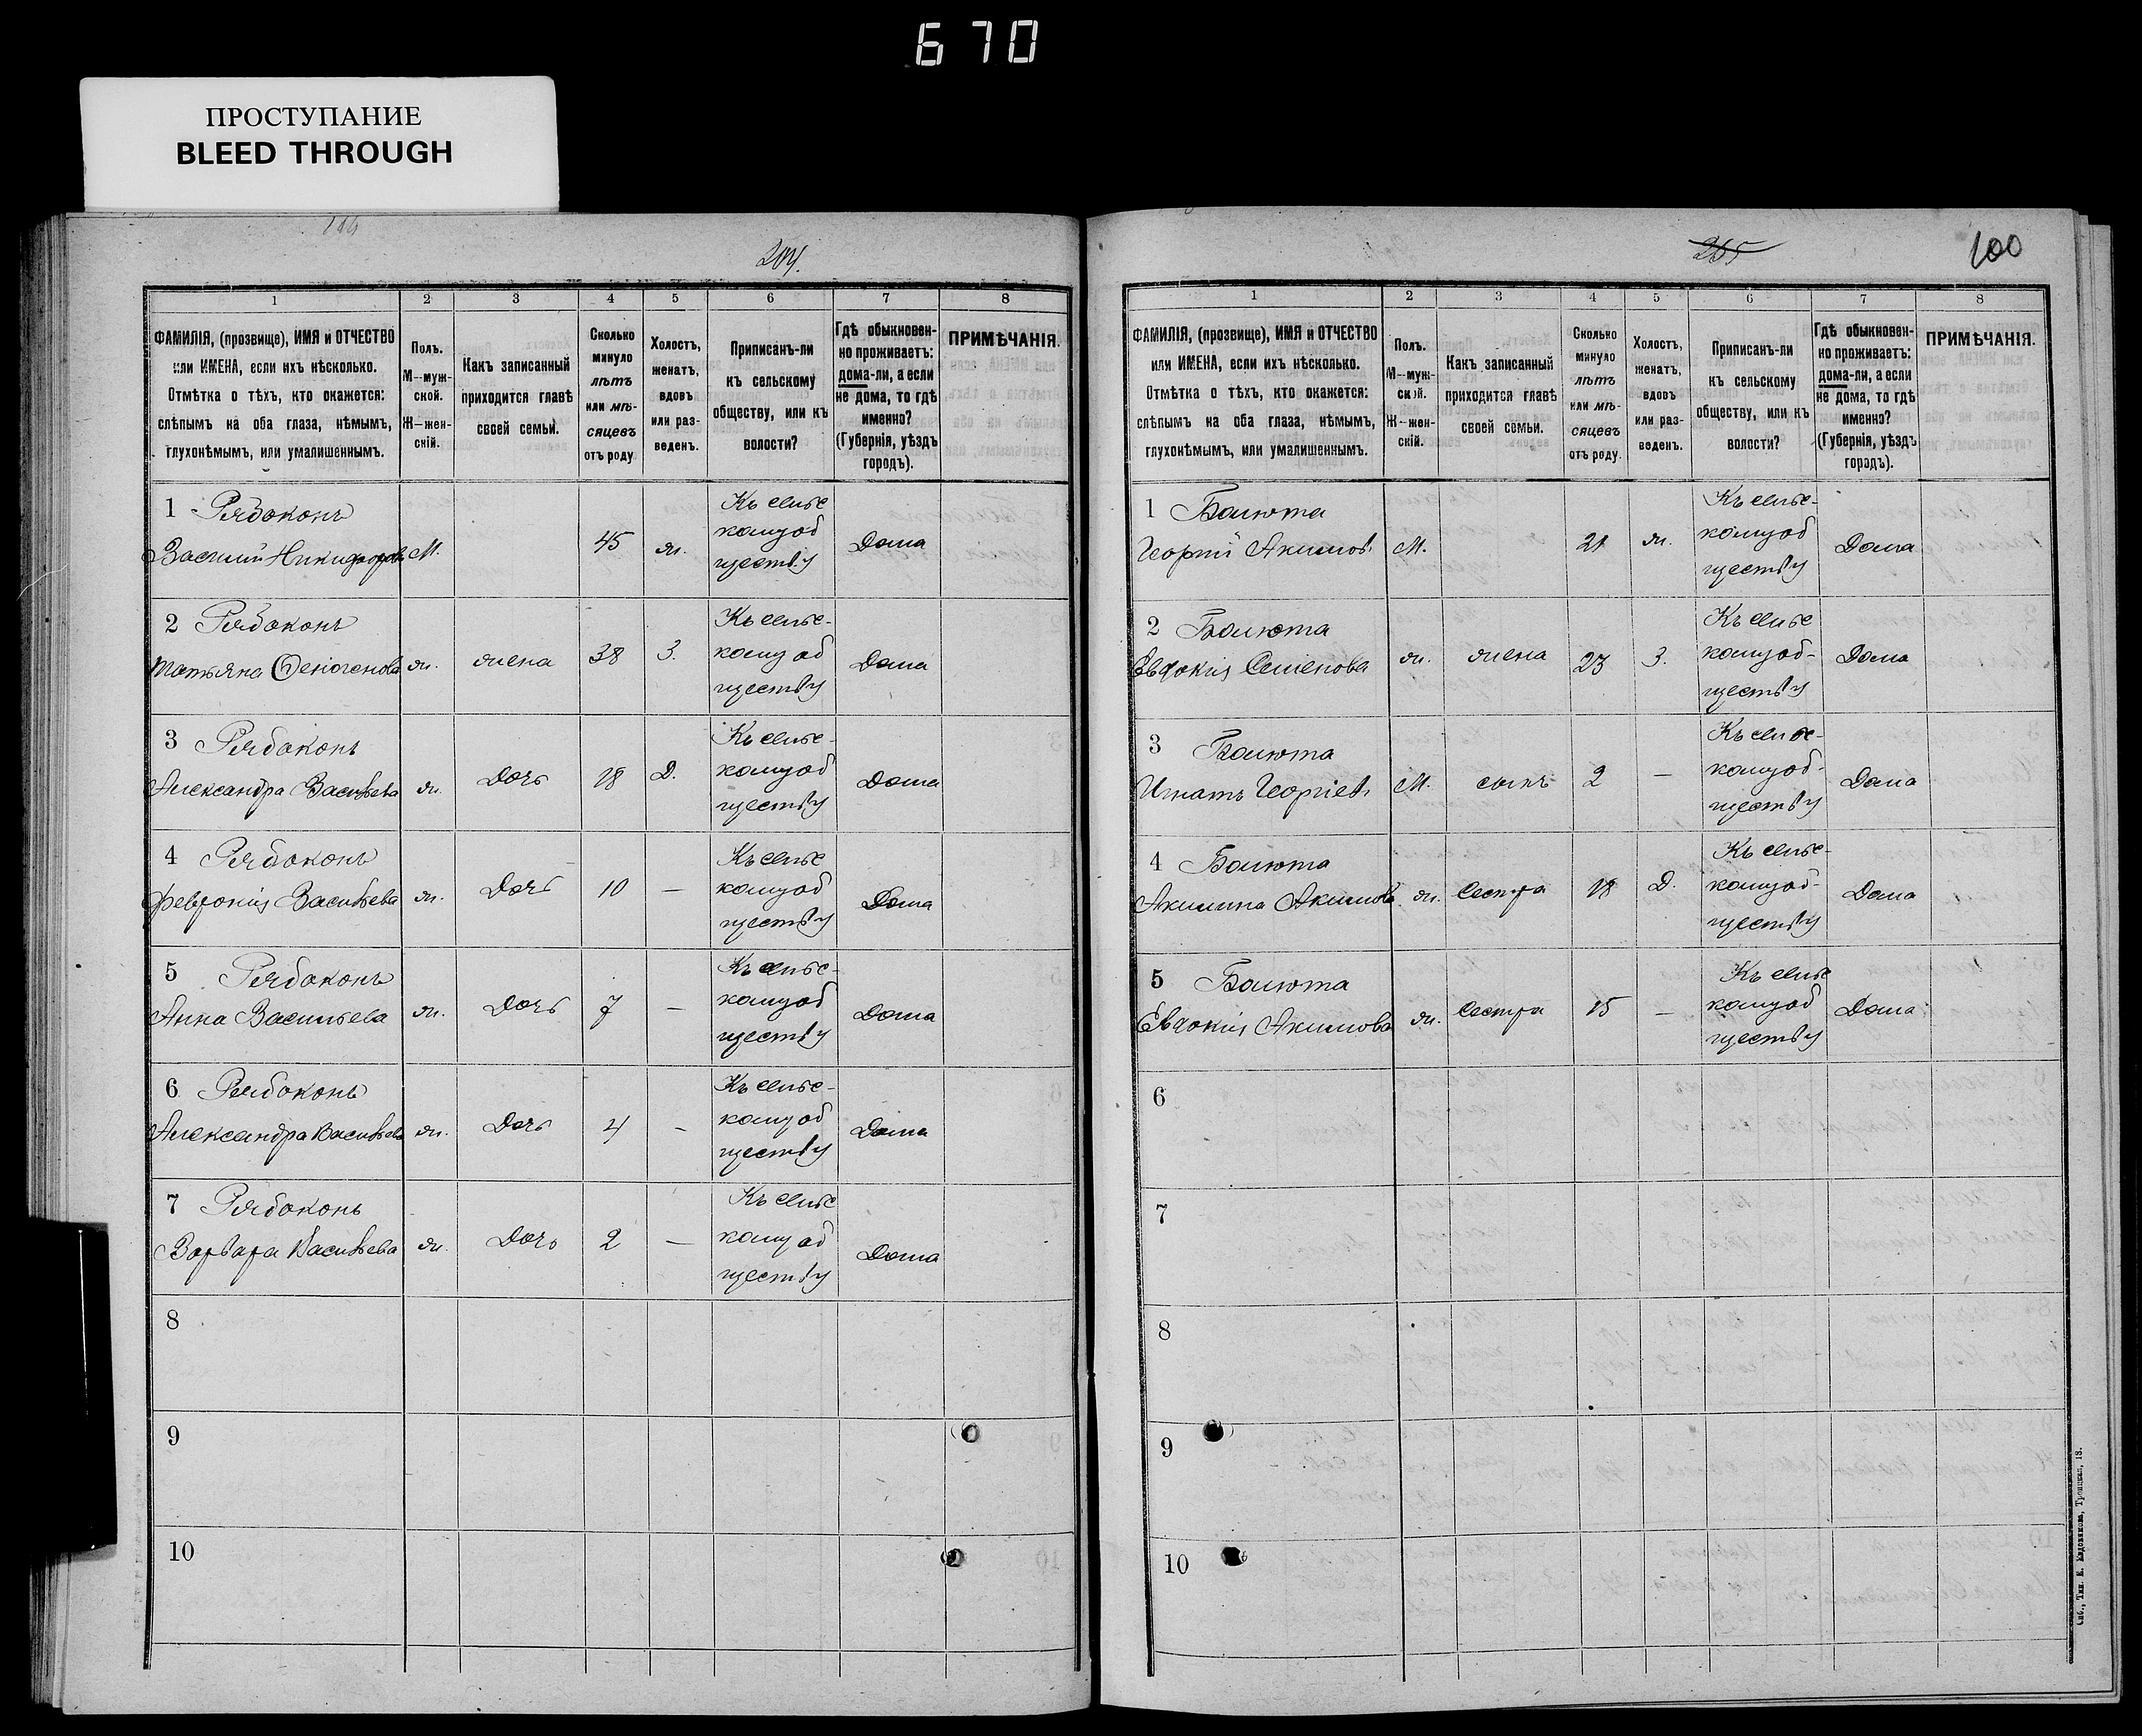 670
ПРОСТУПАНИЕ
BLEED THROUGH
204.
1 2 3 4 5 6 7 8
ФАМИЛІЯ, (прозвище), ИМЯ и ОТЧЕСТВО
или ИМЕНА, если ихъ нѣсколько.
Отмѣтка о тѣхъ, кто окажется:
слѣпымъ на оба глаза, нѣмымъ,
глухонѣмымъ, или умалишеннымъ.
Полъ.
М—муж-
ской.
Ж—жен-
скій.
Какъ записанный
приходится главѣ
своей семьи.
Сколько
минуло
лѣтъ
или мѣ-
сяцевъ
отъ роду
Холостъ,
женатъ,
вдовъ
или раз-
веденъ.
Приписанъ-ли
къ сельскому
обществу, или къ
волости?
Гдѣ обыкновен-
но проживаетъ:
дома-ли, а если
не дома, то гдѣ
именно?
(Губернія, уѣздъ
городъ).
ПРИМѢЧАНІЯ.
1 Рябоконь
Василій Никифоровъ М. 45 ж. Къ сельскому обществу Дома
2 Рябоконь
Татьяна ж. жена 38 З. Къ сельскому обществу Дома
3 Рябоконь
Александра Васильева ж. Дочь 18 Д. Къ сельскому обществу Дома
4 Рябоконь
Феврония Васильева ж. Дочь 10 — Къ сельскому обществу Дома
5 Рябоконь
Анна Васильева ж. Дочь 7 — Къ сельскому обществу Дома
6 Рябоконь
Александра Васильева ж. Дочь 4 - Къ сельскому обществу Дома
7 Рябоконь
Варвара Васильева ж. Дочь 2 — Къ сельскому обществу Дома
8
9
10
205
100
1 2 3 4 5 6 7 8
ФАМИЛІЯ, (прозвище), ИМЯ и ОТЧЕСТВО
или ИМЕНА, если ихъ нѣсколько.
Отмѣтка о тѣхъ, кто окажется:
слѣпымъ на оба глаза, нѣмымъ,
глухонѣмымъ, или умалишеннымъ.
Полъ.
М—муж-
ской.
Ж—жен-
скій.
Какъ записанный
приходится главѣ
своей семьи.
Сколько
минуло
лѣтъ
или мѣ-
сяцевъ
отъ роду.
Холостъ,
женатъ,
вдовъ
или раз-
веденъ.
Приписанъ-ли
къ сельскому
обществу, или къ
волости?
Гдѣ обыкновен-
но проживаетъ:
дома-ли, а если
не дома, то гдѣ
именно?
(Губернія, уѣздъ
городъ).
ПРИМѢЧАНІЯ.
1 Балюта
Георгій Акимовъ М. 21 ж. Къ сельскому обществу Дома
2 Балюта
Евдокія Семенова ж. жена 23 З. Къ сельскому обществу Дома
3 Балюта
Игнатъ Георгіевъ М. сынъ 2 — Къ сельскому обществу Дома
4 Балюта
Акилина Акимова ж. Сестра 18 Д. Къ сельскому обществу Дома
5 Балюта
Евдокія Акимова ж. Сестра 15 — Къ сельскому обществу Дома
6
7
8
9
10
Спб., Тип. Е. Евдокимова, Троицкая, 18.